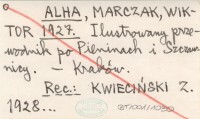 ALHA, MARCZAK, WIK-
TOR 1927. Ilustrowany prze-
wodnik po Pieninach i Szczaw-
nicy. – Kraków.
Rec.: KWIECIŃSKI Z.
1928...